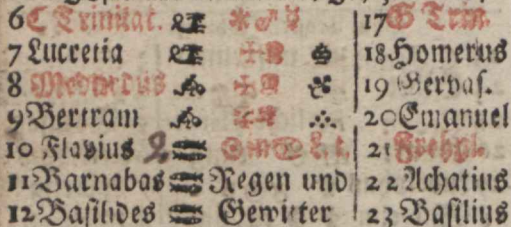 6 C Trinitat. 17 G Trin.
7 Lucretia 18 Homerus
8 Medardus 19 Gervas.
9 Bertram 20 Emanuel
10 Flavius 2 21
11 Barnabas Regen und 22 Achatius
12 Basilides Gewitter 23 Basilius